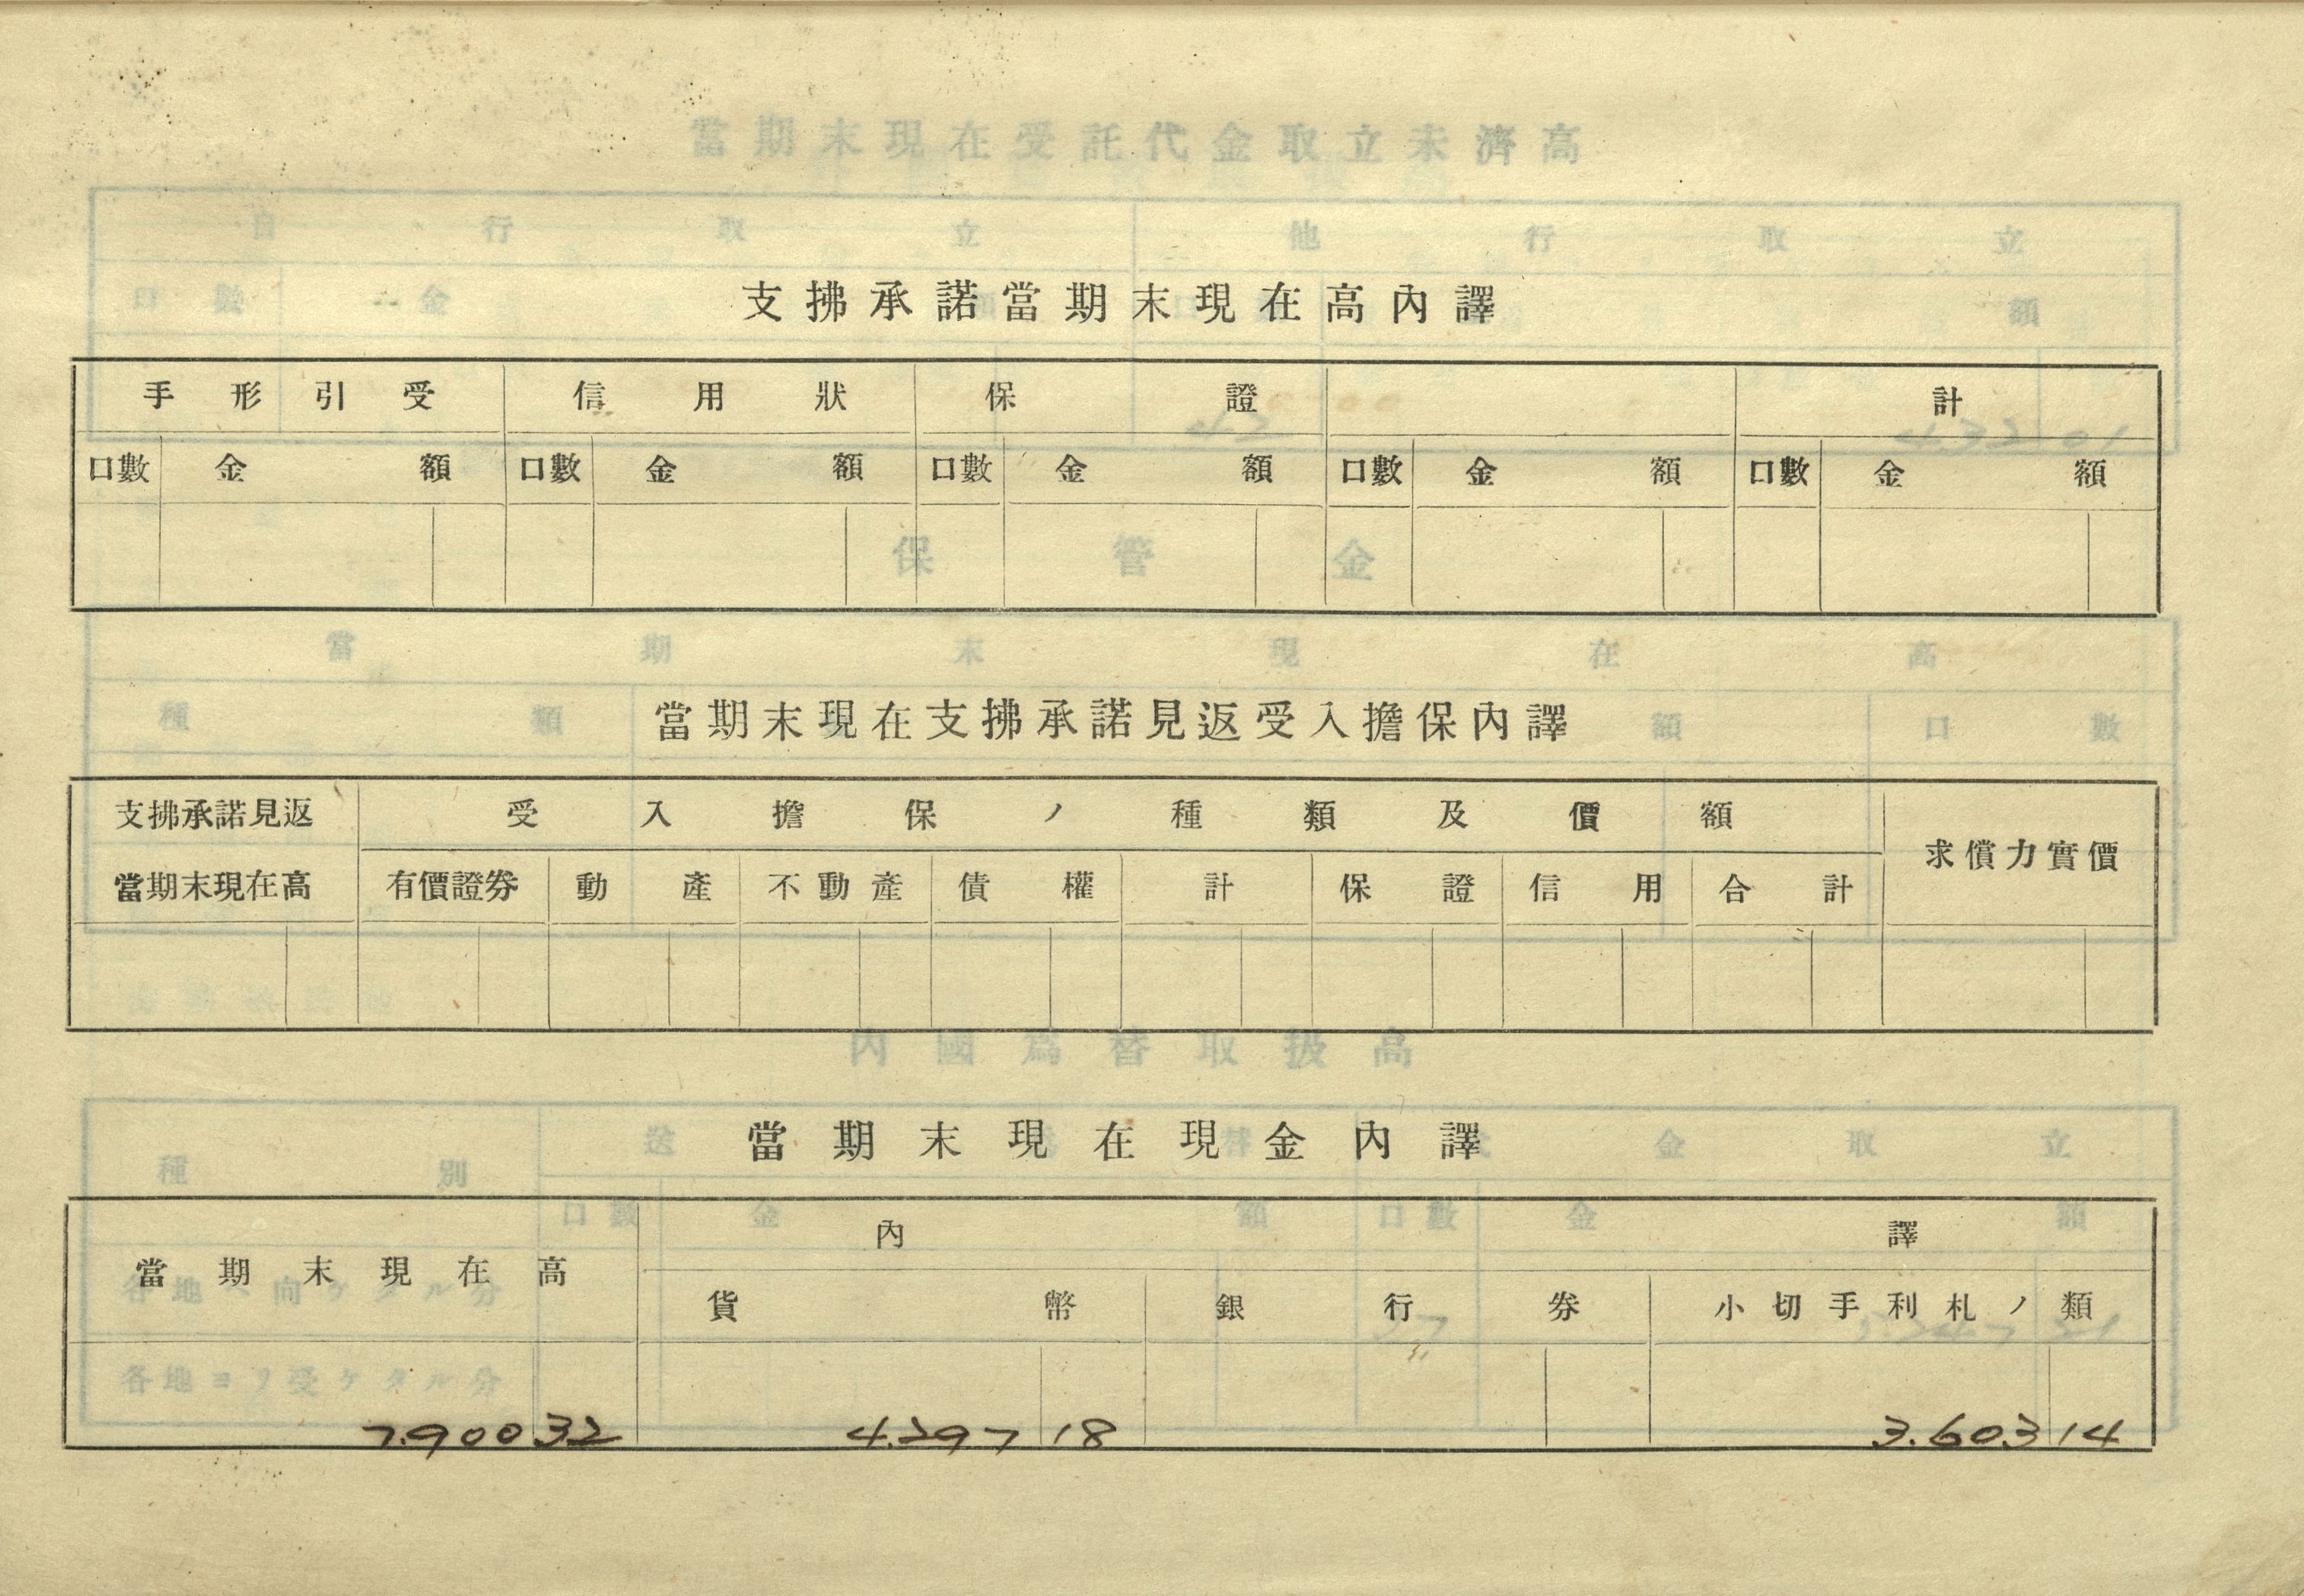 支拂承諾當期末現在高內譯
手形引受 信用狀 保證 計
口數 金額 口數 金額 口數 金額 口數 金額 口數 金額
當期末現在支拂承諾見返受入擔保內譯
支拂承諾見返 受入擔保ノ種類及價額
求償力實價
當期末現在高 有價證券 動產 不動產 債權 計 保證 信用 合計
當期末現在現金內譯
內譯
當期末現在高
貨幣 銀行券 小切手利札ノ類
7.900 32 4.297 18 3.603 14